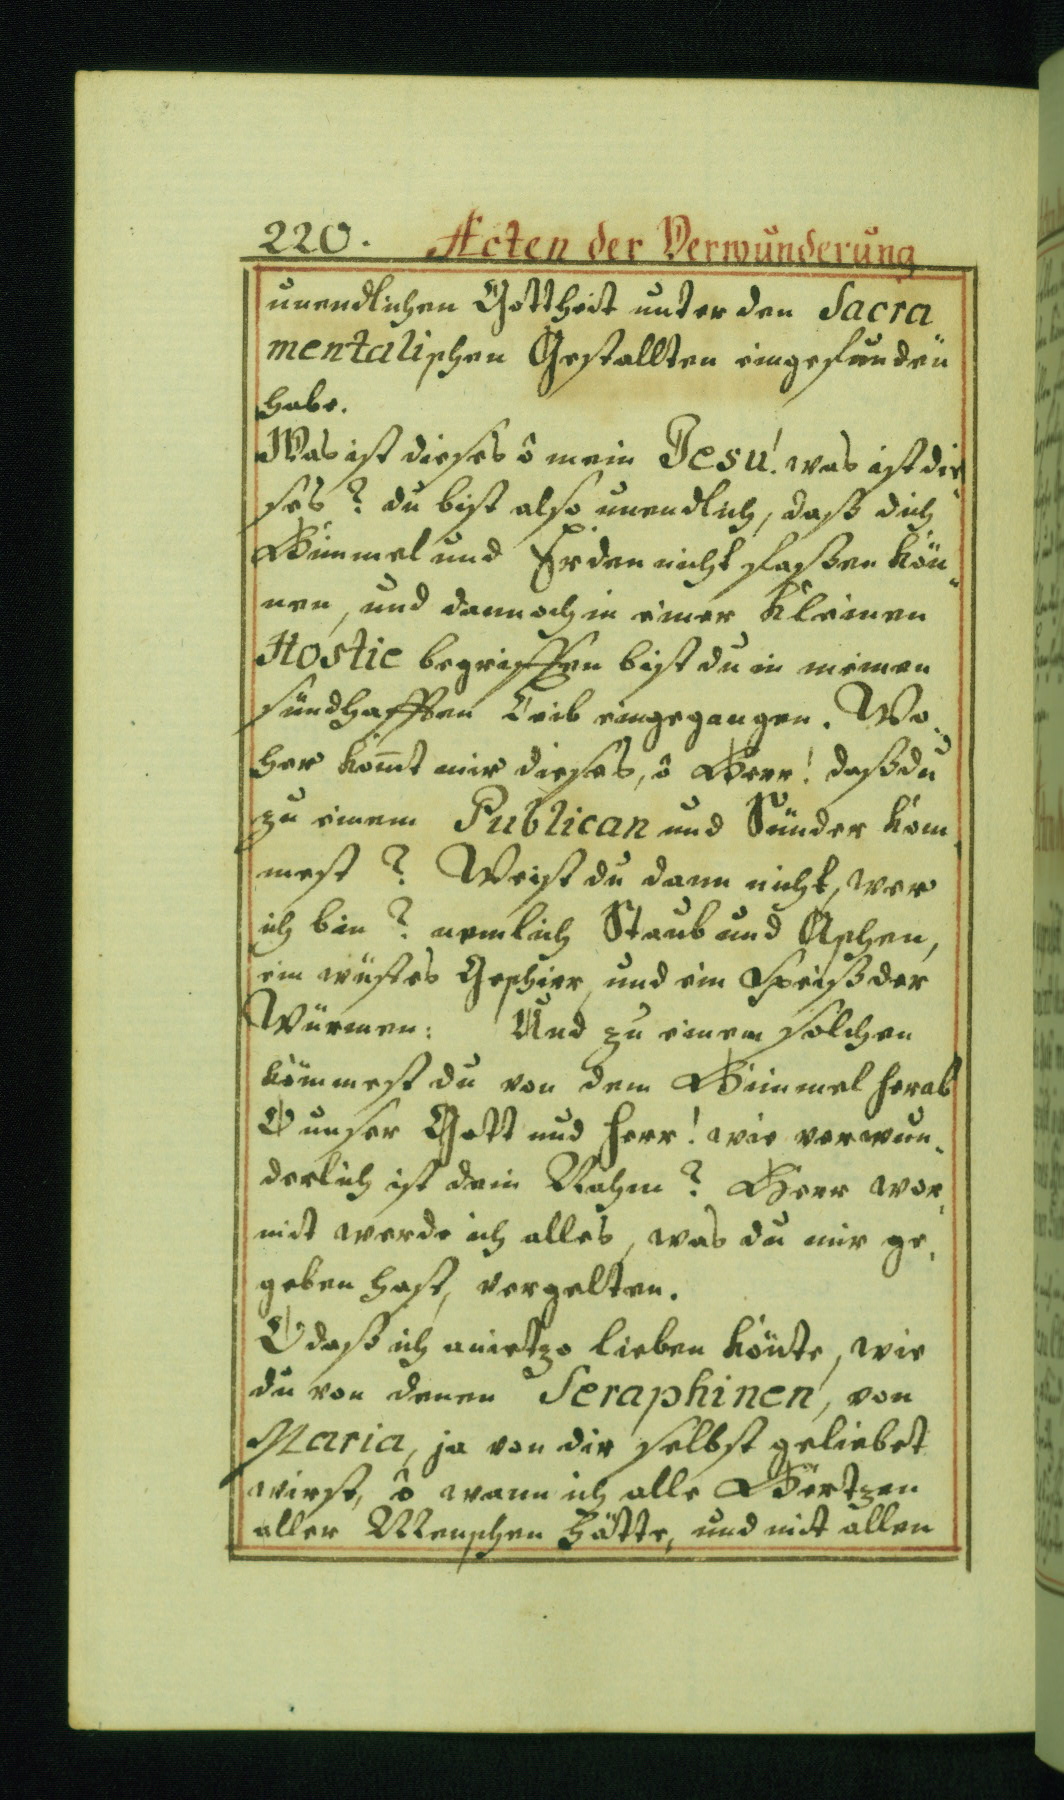 220. Acten der Verwunderung
unendlichen Gottheit unter den Sacra
mentalischen Gestallten eingefunden
habe.
Was ist dieses ô mein Jesu! was ist die„
ses? du bist also unendlich, daß dich
Himmel und Erden nicht faßen kön„
nen, und dannoch in einer kleinen
Hostie begriffen bist du in meinen
sündhafften Leib eingegangen. Wo„
her kom̄t mir dieses, ô Herr! daß du
zu einem Publican und Sünder kom„
mest? Weist du dann nicht, wer
ich bin? nemlich Staub und Aschen,
ein wüstes Geschirr, und ein Speiß der
Würmen: Und zu einem solchen
kommest du von dem Himmel herab
O unser Gott und Herr! wie verwun„
derlich ist dein Nahm? Herr wor„
mit werde ich alles, was du mir ge„
geben hast, vergelten.
O daß ich anietzo lieben könte, wie
du von denen Seraphinen, von
Maria, ja von dir selbst geliebet
wirst, ô wann ich alle Hertzen
aller Menschen hätte, und mit allen